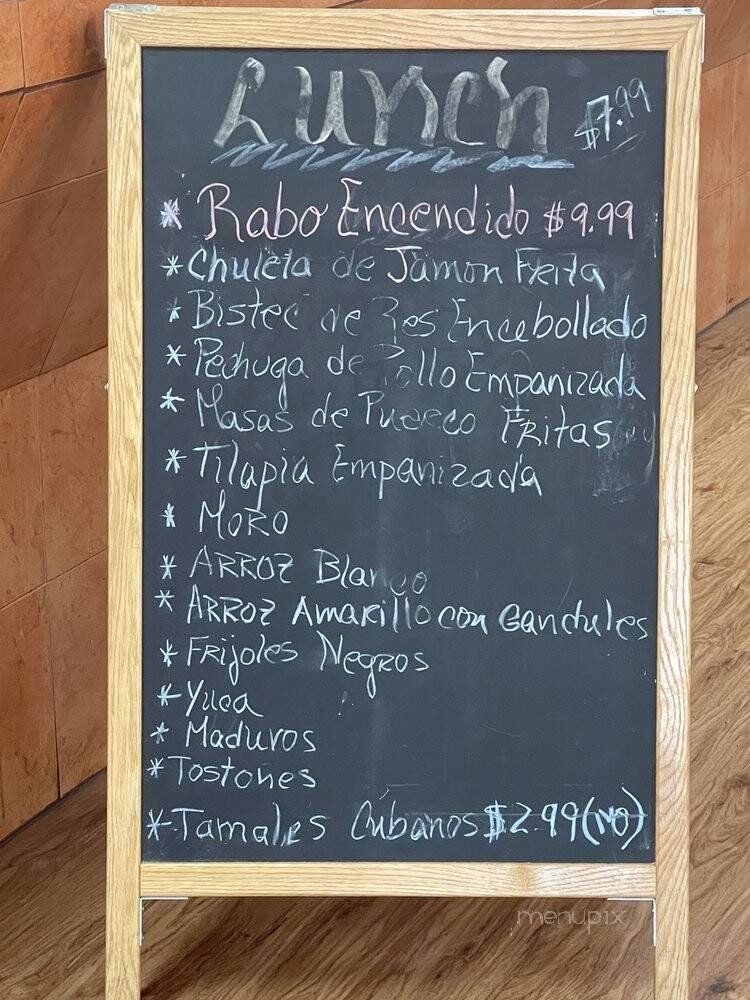 Lunch $7.99
* Rabo Encendido $9.99
* Chuleta de Jamon Freita
* Bistec de Res Encebollado
* Pechuga de Pollo Empanizada
* Masas de Puerco Fritas
* Tilapia Empanizada
* Moro
* ARROZ Blanco
* ARROZ Amarillo con Gandules
* Frijoles Negros
* Yuca
* Maduros
* Tostones
* Tamales Cubanos $2.99 (NO)
menupix